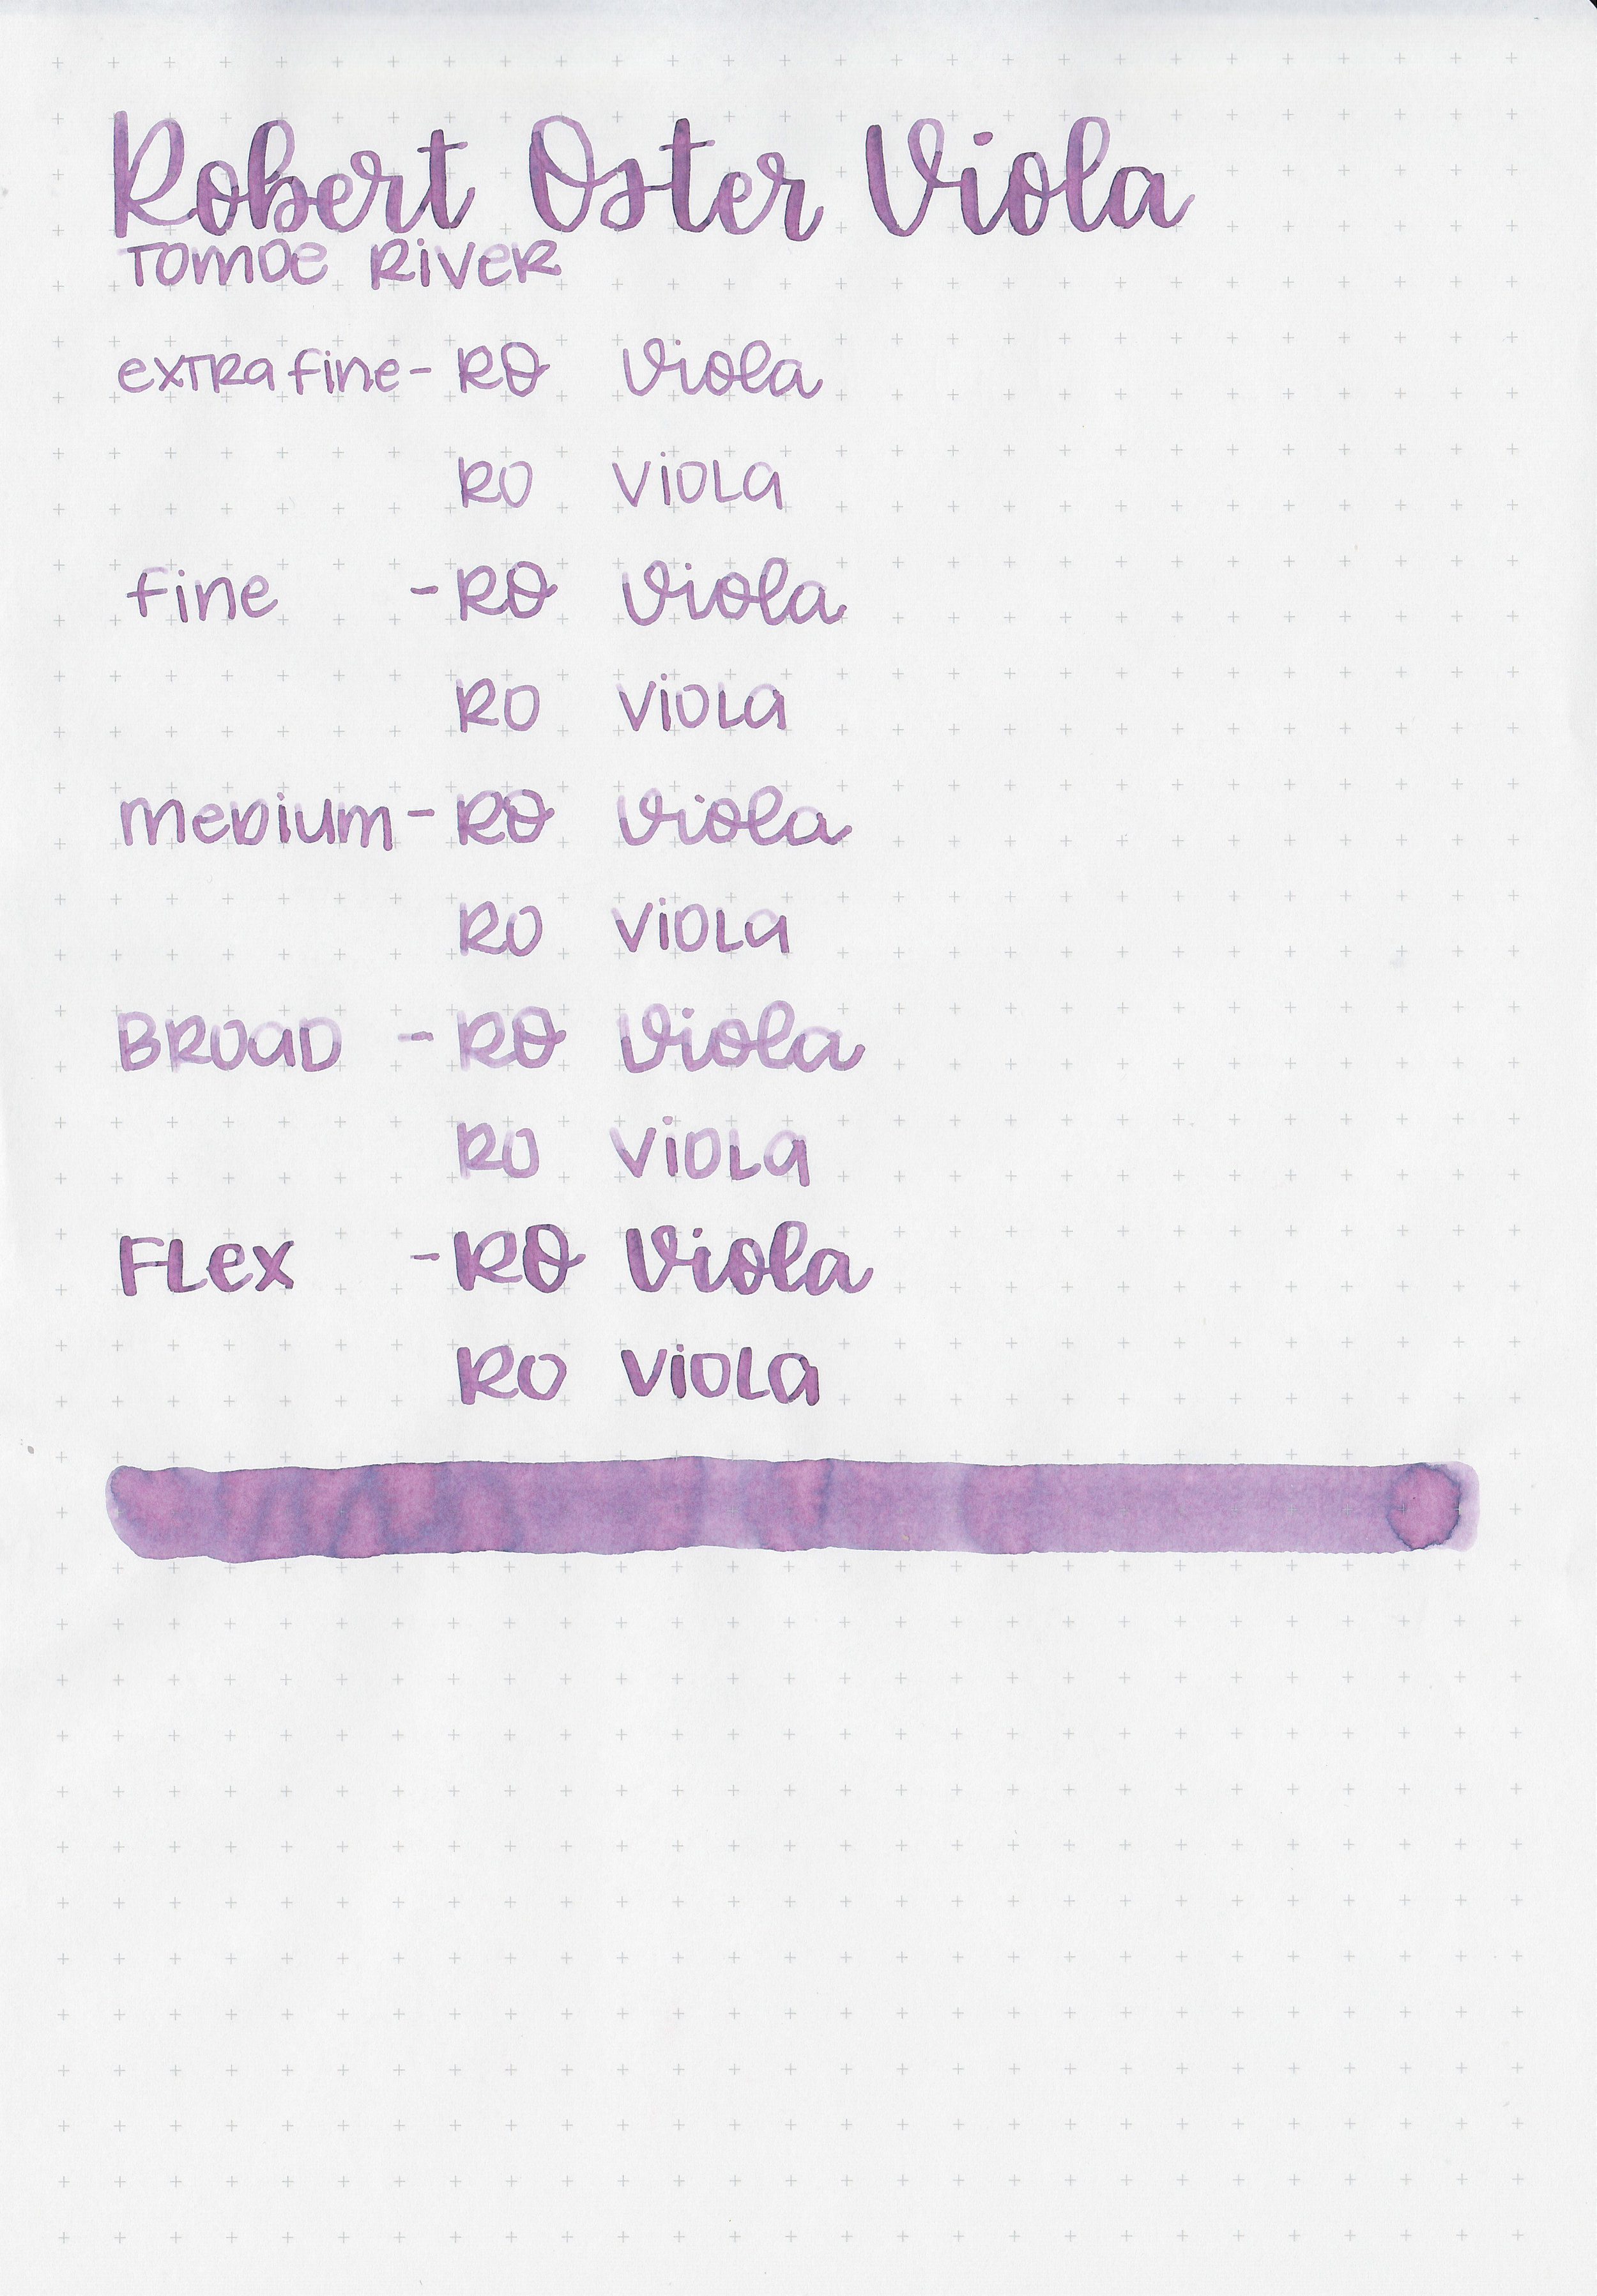 Robert Oster Viola
TOMOE RiVER
exTRa fine - RO Viola
RO ViOLa
fine - RO Viola
RO ViOLa
meDium - RO Viola
RO ViOLa
BROaD - RO Viola
RO ViOLa
FLex - RO Viola
RO ViOLa